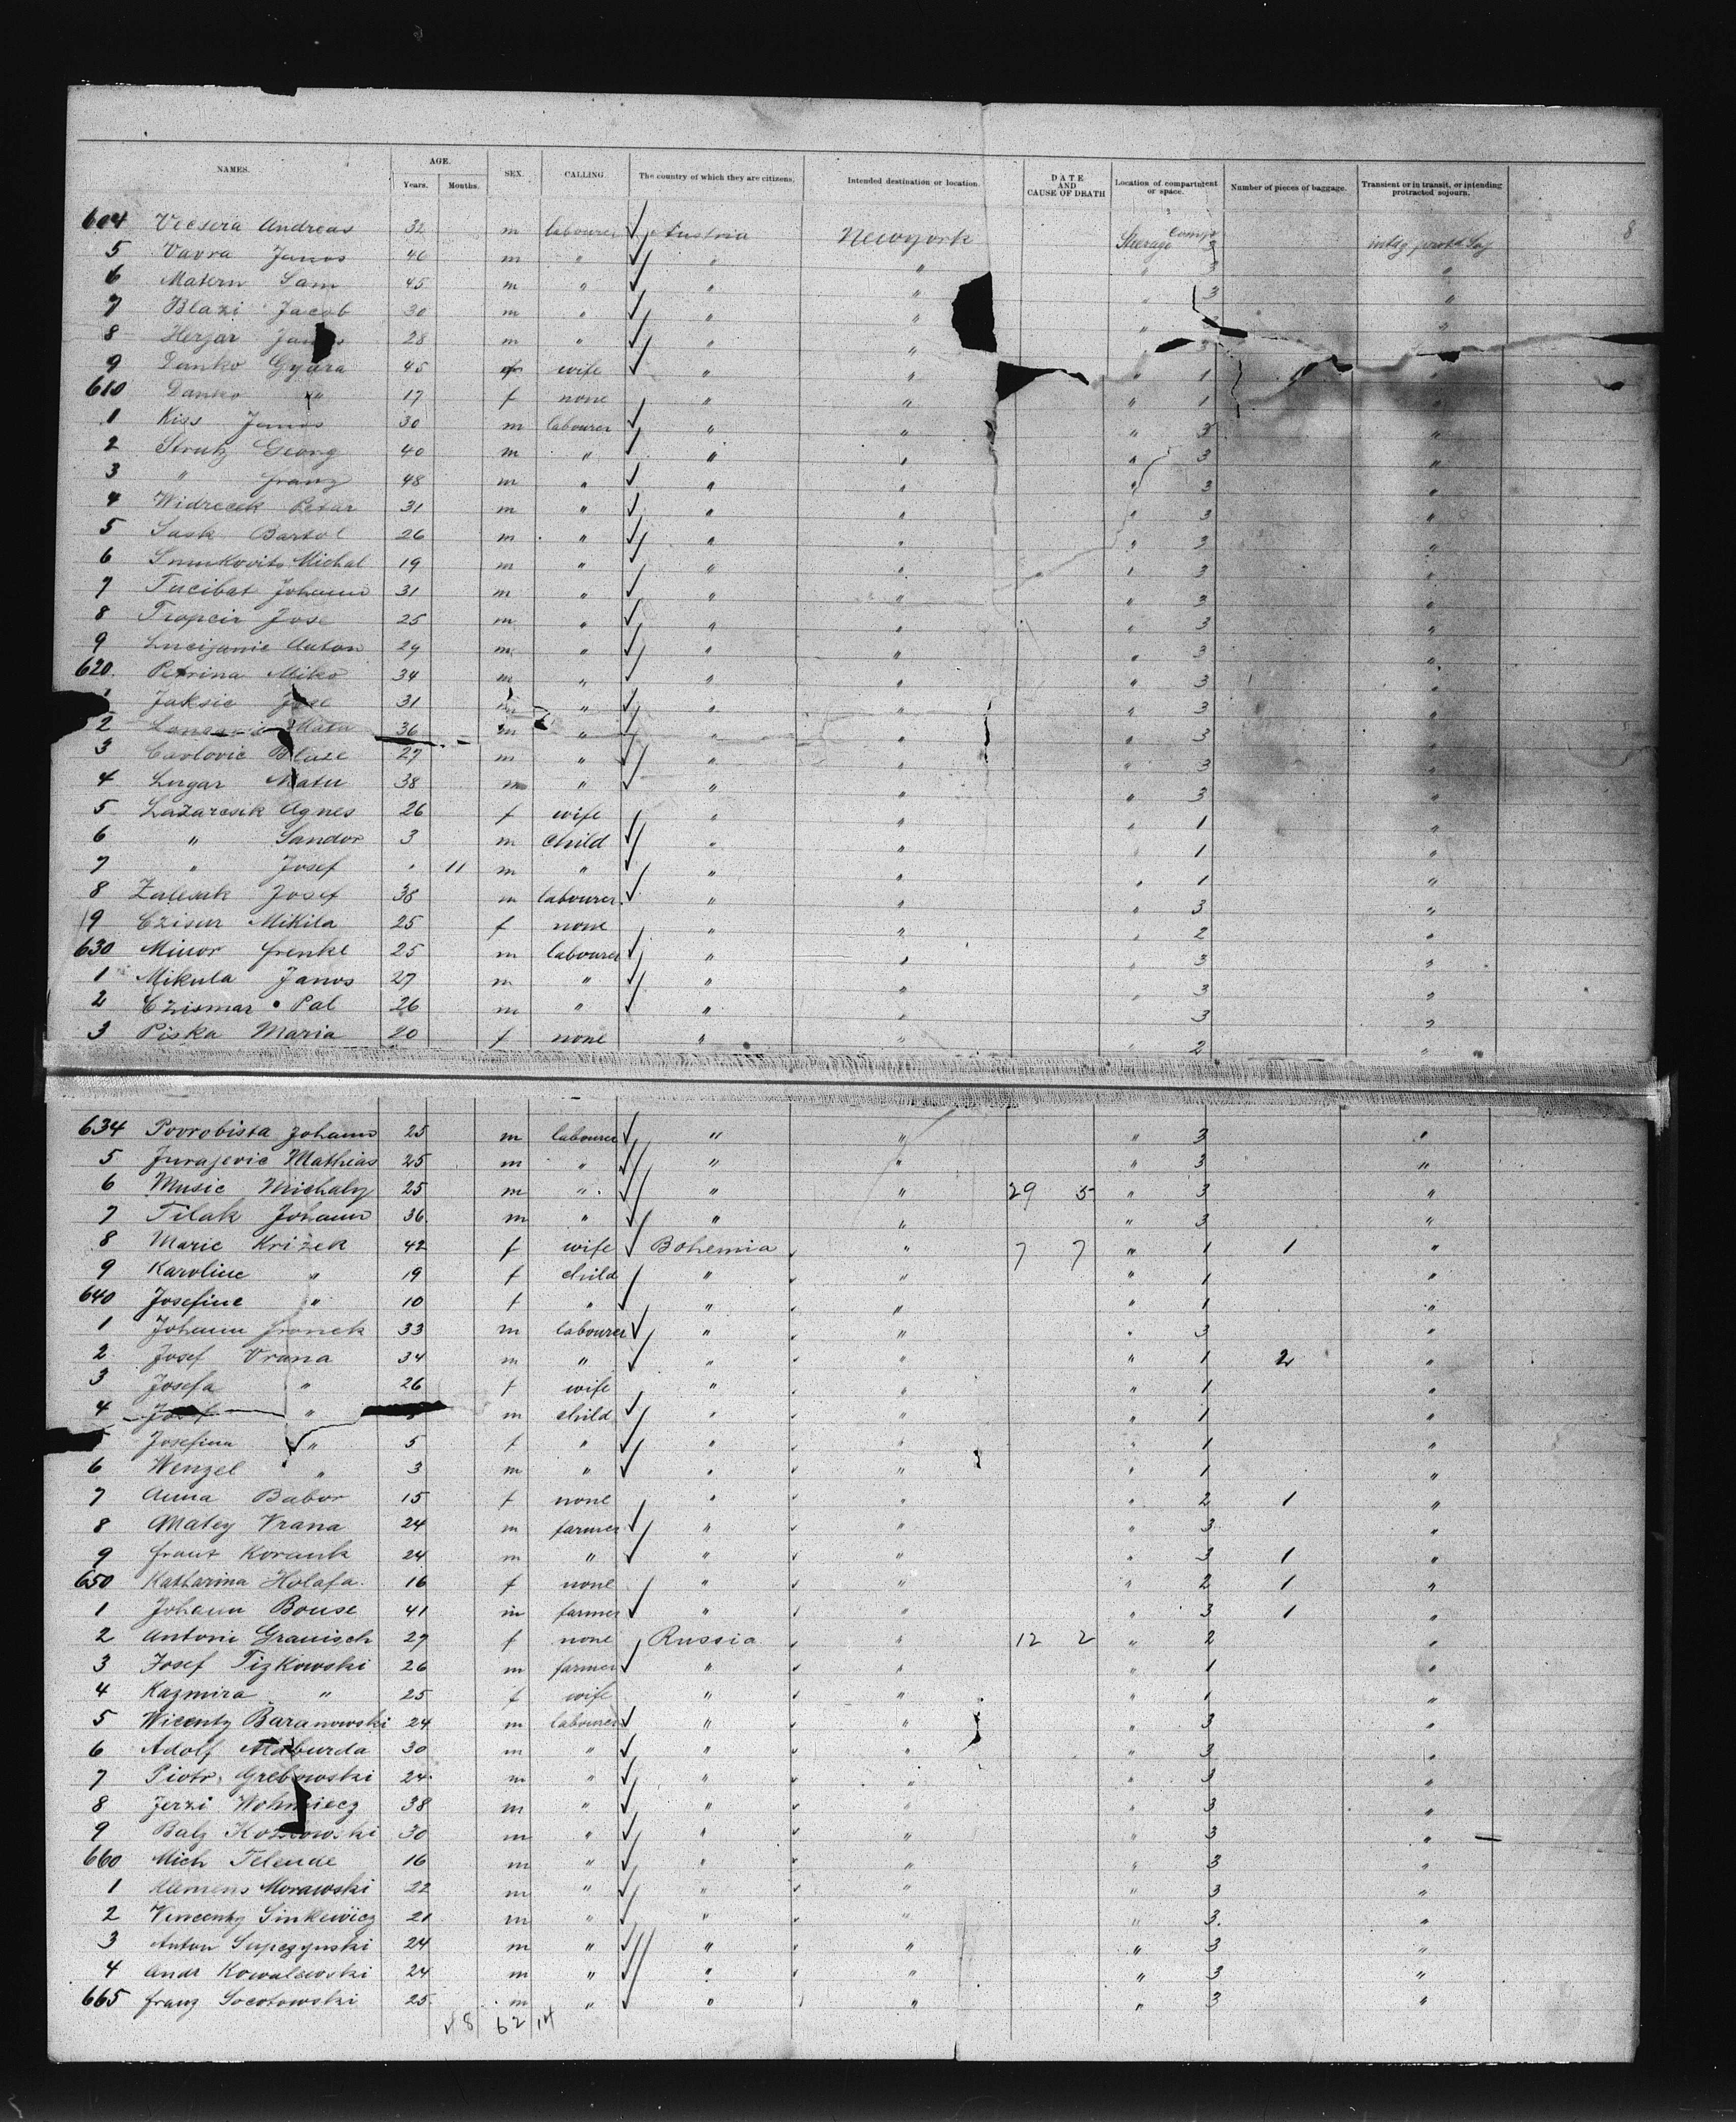 NAMES. AGE. SEX. CALLING The country of which they are citizens. Intended destination or location. DATE AND CAUSE OF DEATH Location of compartment or space. Number of pieces of baggage. Transient or in transit, or intending protracted sojourn.
Years. Months.
604 Vecsera Andreas 32 m labourer Austria Newyork Steerage Comp 3 8
5 Vavra Janos 40 m " " " " 3 "
6 Matern Sam 45 m " " " " 3 "
7 Blazi Jacob 30 m " " " " "
8 Herzar Janos 28 m " " " 3
9 Danko Gyura 45 wife " " " 1 "
610 Danko " 17 f none " " " 1 "
1 Kiss Janos 30 m labourer " " " 3 "
2 Strutz Georg 40 m " " " " 3 "
3 " Franz 48 m " " " " 3 "
4 Widrecek Petar 31 m " " " " 3 "
5 Sask Bartol 26 m " " " " 3 "
6 Smukovits Michal 19 m " " " " 3 "
7 Tucibat Johann 31 m " " " " 3 "
8 Tropcir Jose 25 m " " " " 3 "
9 Lucijanic Anton 29 m " " " " 3 "
620 Petrina Miko 34 m " " " " 3 "
Jaksic Jose 31 m " " " " 3 "
2 Matu 36 m " " " " 3 "
3 Cavlovic Blaze 27 m " " " " 3 "
4 Lugar Matu 38 m " " " " 3 "
5 Lazarcsik Agnes 26 f wife " " " 1 "
6 " Sandor 3 m child " " " 1 "
7 " Josef " 11 m " " " " 1 "
8 Zalesak Josef 38 m labourer " " " 3 "
9 Czisur Mikila 25 f none " " " 2 "
630 Minor Frenkl 25 m labourer " " " 3 "
1 Mikula Janos 27 m " " " " 3 "
2 Czismar Pal 26 m " " " 3 "
3 Piska Maria 20 f none " " " 2 "
634 Povrobista Johann 25 m labourer " " " 3 "
5 Jurajevic Mathias 25 m " " " " 3 "
6 Music Michaly 25 m " " " 29 5 " 3 "
7 Tilak Johann 36 m " " " " 3 "
8 Marie Krizek 42 f wife Bohemia " 7 7 " 1 1 "
9 Karoline " 19 f child " " " 1 "
640 Josefine " 10 f " " " " 1 "
1 Johann Fronek 33 m labourer " " " 3 "
2 Josef Vrana 34 m " " " " 1 2 "
3 Josefa " 26 f wife " " " 1 "
4 Josef " m child " " " 1 "
Josefina " 5 f " " " " 1 "
6 Wenzel " 3 m " " " " 1 "
7 Anna Babor 15 f none " " " 2 1 "
8 Matey Vrana 24 m farmer " " " 3 "
9 Franz Korank 24 m " " " " 3 1 "
650 Katharina Holafa 16 f none " " " 2 1 "
1 Johann Bouse 41 m farmer " " " 3 1 "
2 Antoni Granisch 27 f none Russia " 12 2 " 2 "
3 Josef Tizkowski 26 m farmer " " " 1 "
4 Kazmira " 25 f wife " " " 1 "
5 Wicenty Baranowski 24 m labourer " " " 3 "
6 Adolf Maburda 30 m " " " " 3 "
7 Piotr Grebowski 24 m " " " " 3 "
8 Jerzi 38 m " " " " 3 "
9 Balz Kozlowski 30 m " " " " 3 "
660 Mich Telende 16 m " " " " 3 "
1 Klemens Morawski 22 m " " " " 3 "
2 Vincenty Sinkewicz 21 m " " " " 3 "
3 Anton Supczynski 24 m " " " " 3 "
4 Andr Kowalewski 24 m " " " " 3 "
665 Franz Socotowski 25 m " " " " 3 "
62 14